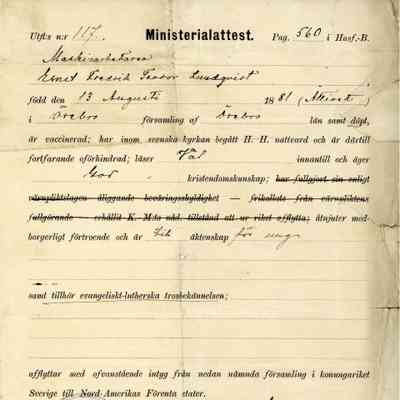 Utfl:s n:r 117. Ministerialattest. Pag. 560 i Husf.-B.
Maskinarbetaren
Ernst Fredrik Teodor Lundqvist
född den 13 Augusti 1881 (Åttioett)
i Örebro församling af Örebro län samt döpt,
är vaccinerad; har inom svenska kyrkan begått H. H. nattvard och är därtill
fortfarande oförhindrad; läser Väl innantill och äger
God kristendomskunskap; har fullgjort sin enligt
värnpliktslagen åliggande beväringsskyldighet — frikallats från värnpliktens
fullgörande — erhållit K. M:ts nåd. tillstånd att ur riket afflytta; åtnjuter med-
borgerligt förtroende och är till äktenskap för ung
samt tillhör evangeliskt-lutherska trosbekännelsen;
afflyttar med ofvanstående intyg från nedan nämnda församling i konungariket
Sverige till Nord-Amerikas Förenta stater.